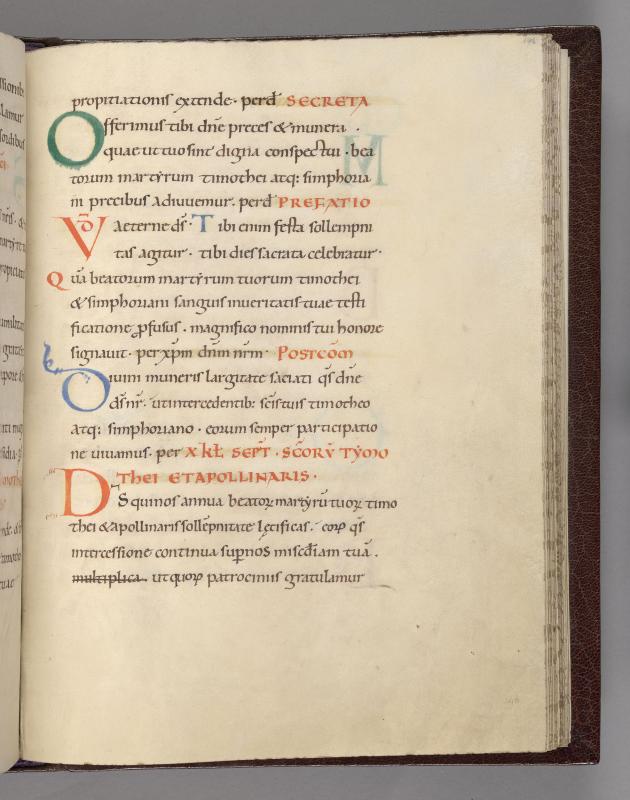 propitiationis extende · perd̄ SECRETA
Offerimus tibi dn̄e preces & munera ·
quae ut tuo sint digna conspectui · bea
torum martẏrum timothei atq: simphoria
ni precibus adiuuemur. perd̄ PREFATIO
VD̄ aeterne ds̄ · Tibi enim festa sollempni
tas agitur · tibi dies sacrata celebratur ·
Quā beatorum martẏrum tuorum timothei
& simphoriani sanguis in ueritatis tuae testi
ficatione ꝓfusus · magnifico nominis tui honore
signauit · per xp̄m dn̄m nr̄m · POSTCOM̄
Diuini muneris largitate saciati qs̄ dn̄e
ds̄ nr̄ · ut intercedentib: sc̄is tuis timotheo
atq: simphoriano · eorum semper participatio
ne uiuamus · per X KL̄ SEPT̄ · SC̄ORV̄ TYMO
THEI ET APOLLINARIS ·
DS qui nos annua beatoꝝ martẏrū tuoꝝ timo
thei & apollinaris sollēpnitate lętificas · c̄ꝑ qs̄
intercessione continua sup̄ nos mis̄cdiam tuā ·
multiplica · ut quoꝝ patrociniis gratulamur